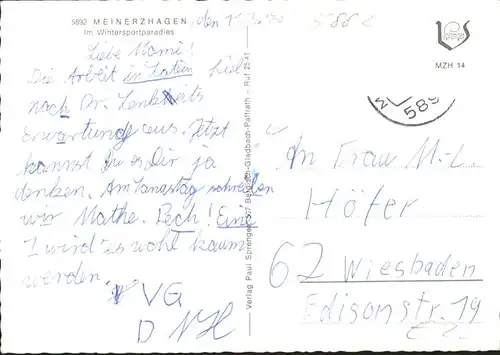 5892 MEINERZHAGEN, den
Im Wintersportparadies
5882
Liebe Mami!
Die Arbeit in Latein fiel
nach Dr. Lenkheits
Erwartung aus. Jetzt
kannst Du es Dir ja
denken. Am Samstag schreiben
wir Mathe. Pech! Eine
1 wird's wohl kaum
werden.
VG
D NH
Verlag Paul Sprenger, 507 Bergisch-Gladbach-Paffrath - Ruf 25 41
MZH 14
589
An Frau M.-L.
Höfer
62 Wiesbaden
Edisonstr. 19